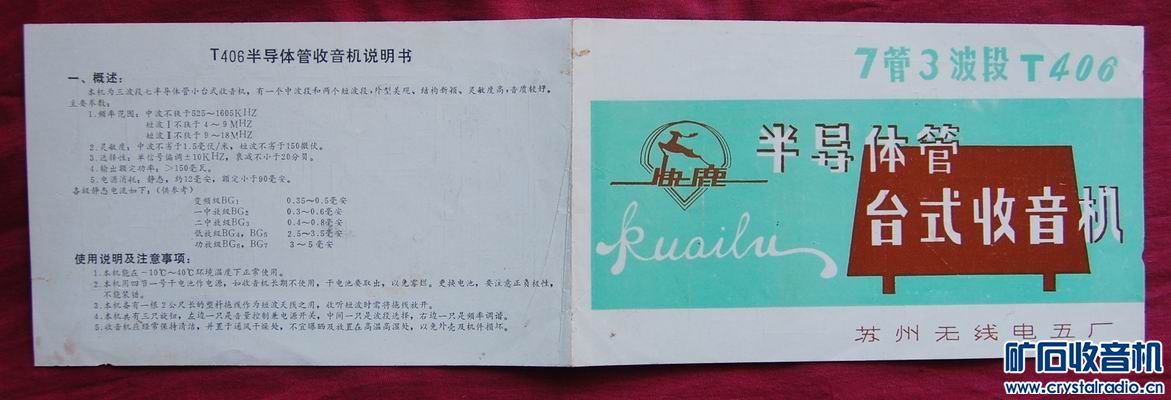 T406半导体管收音机说明书
一、概述：
本机为三波段七半导体管小台式收音机，有一个中波段和两个短波段，外型美观、结构新颖、灵敏度高，音质较好。
主要参数：
1.频率范围：中波不狭于525～1605KHZ
短波Ⅰ不狭于4～9MHZ
短波Ⅱ不狭于9～18MHZ
2.灵敏度：中波不劣于1.5毫伏/米，短波不劣于150微伏。
3.选择性：单信号偏调±10KHZ，衰减不小于20分贝。
4.输出额定功率：>150毫瓦。
5.电源消耗：静态：约12毫安，额定小于90毫安。
各级静态电流如下：（供参考）
变频级BG1 0.35～0.5毫安
一中放级BG2 0.3～0.6毫安
二中放级BG3 0.4～0.8毫安
低放级BG4，BG5 2.5～3.5毫安
功放级BG6，BG7 3～5毫安
使用说明及注意事项：
1.本机能在－10℃～40℃环境温度下正常使用。
2.本机用四节一号干电池作电源，如收音机长期不使用，干电池要取出，以免霉烂。更换电池，要注意正负极性，
不能装错。
3.本机备有一根2公尺长的塑料拖线作为短波天线之用，收听短波时需将拖线放开。
4.本机共有三只旋钮，左边一只是音量控制兼电源开关，中间一只是波段选择，右边一只是频率调谐。
5.收音机应经常保持清洁，并置于通风干燥处，不宜曝晒及放置在高温高湿处，以免外壳及机件损坏。
7管3波段T406
快鹿
半导体管
台式收音机
kuailu
苏州无线电五厂
矿石收音机
www.crystalradio.cn